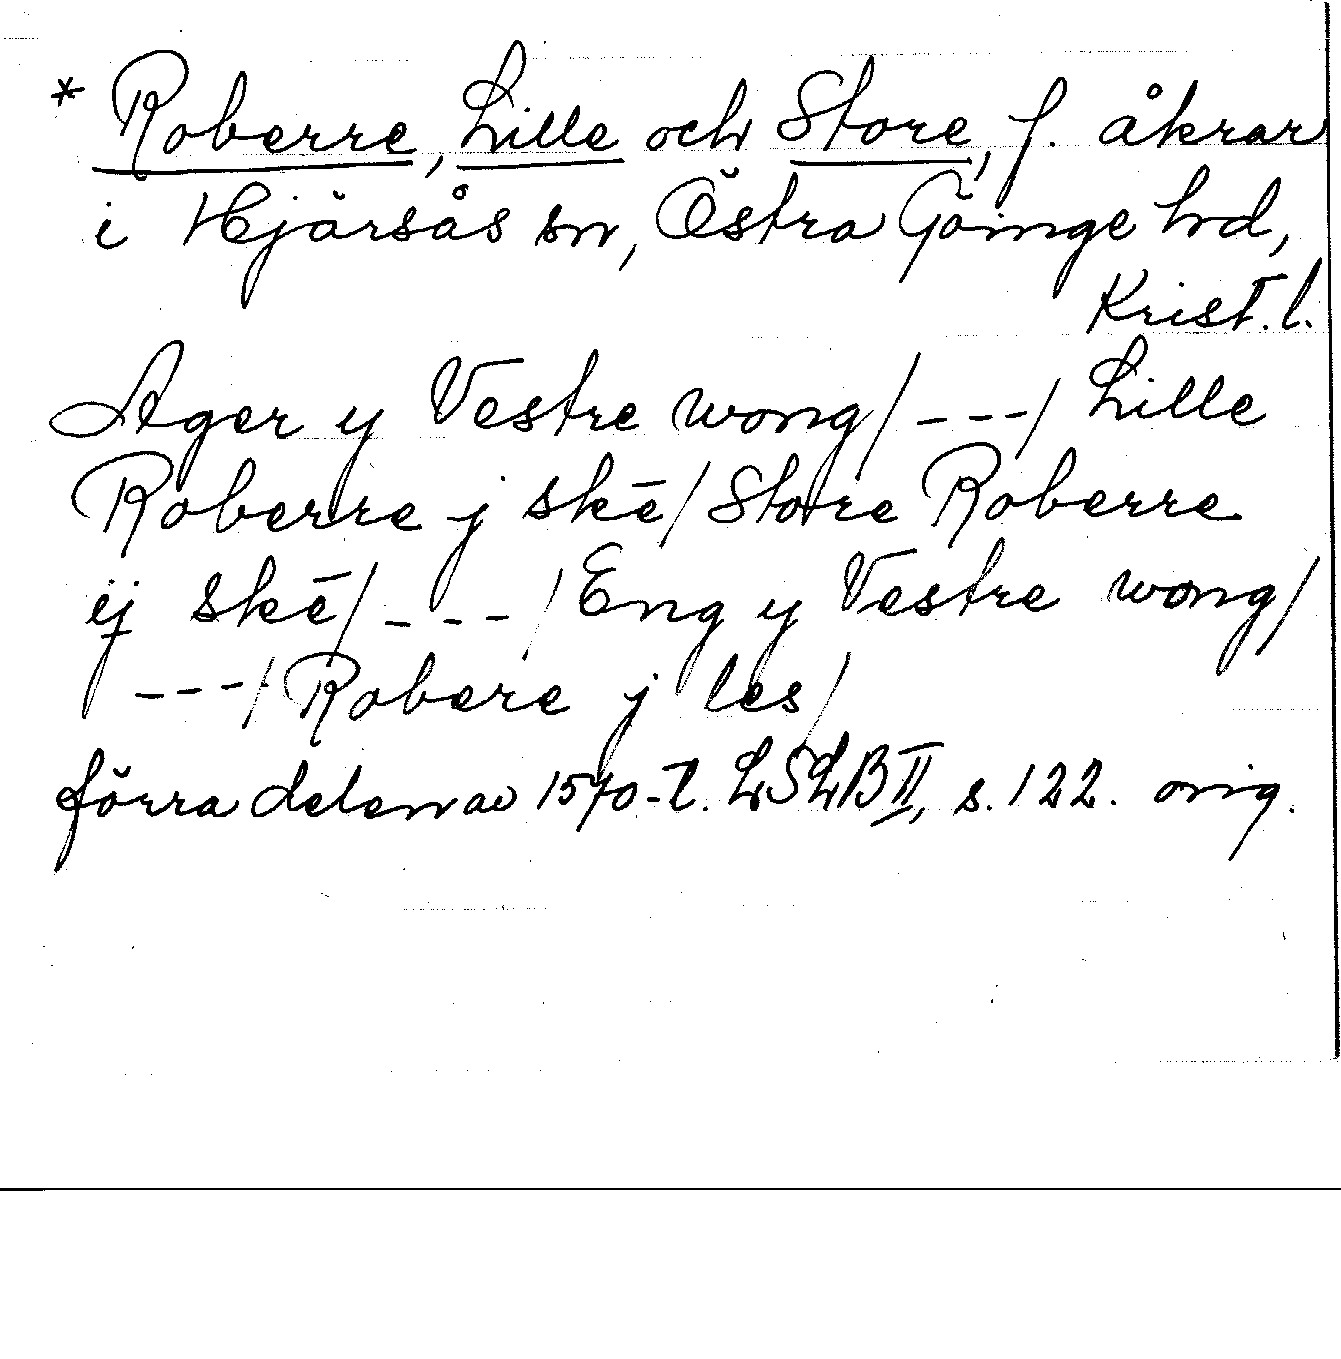 * Roberre, Lille och Store, f. åkrar
i Hjärsås sn, Östra Göinge hd,
Krist. l.
Ager y Vestre wong/ --- / Lille
Roberre j skē/ Store Roberre
ij skē/ --- / Eng y Vestre wong/
--- / Robere j les/
förra delen av 1570-t. LSLB II, s. 122. orig.